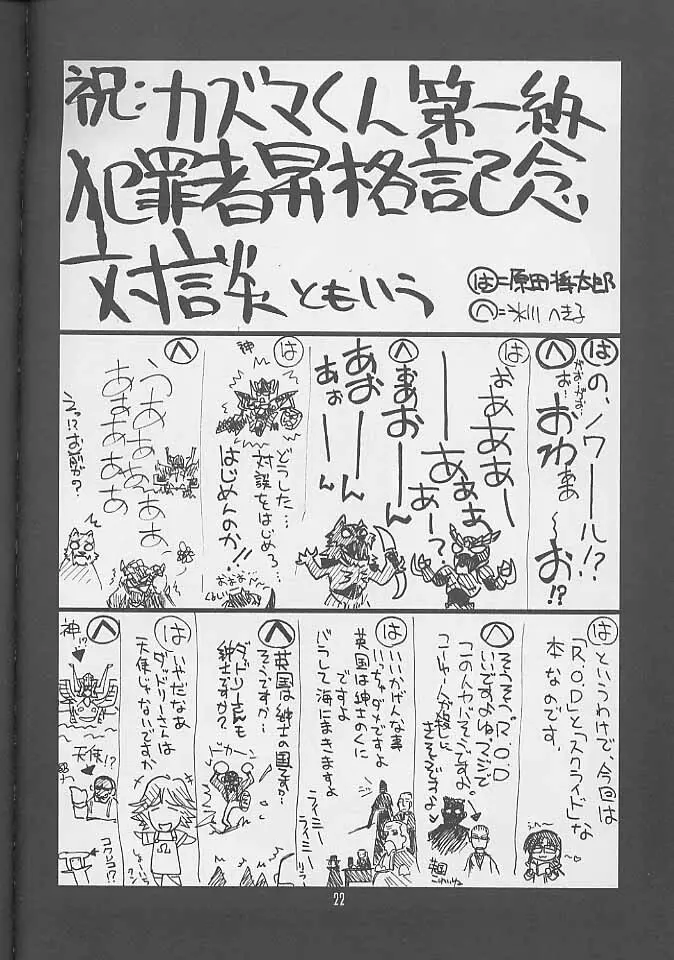 祝:カズマくん第一級
犯罪者昇格記念
対談ともいう
は=原田
へ=氷川へきる
は
の、ノワール!?
へ
がお…がお…
お…おわああ〜お!?
は
おああああー
ーあああ
あー?
へ
おああおーん
あおーん
あぉーん
は
神
どうした…
対談をはじめろ…
はじめんのか!!
おおおお…
へ
うああああぁ
あぁあぁああぁ
えっ!?お前が?
は
というわけで、今回は
「R.O.D」と「スクライド」な
本なのです。
へ
そうそう「R.O.D」
いいですよねマジで
は
いいかげんな事
いっちゃダメですよ
英国は紳士のくに
ですよ
バラして海にまきますよ
へ
英国は紳士の国ですか…
そうですか…
ダッドリーさんも
紳士ですか?
ドカーン
は
いやだなあ
ダッドリーさんは
天使じゃないですか
へ
神!?
天使!?
コワレコ!?
22